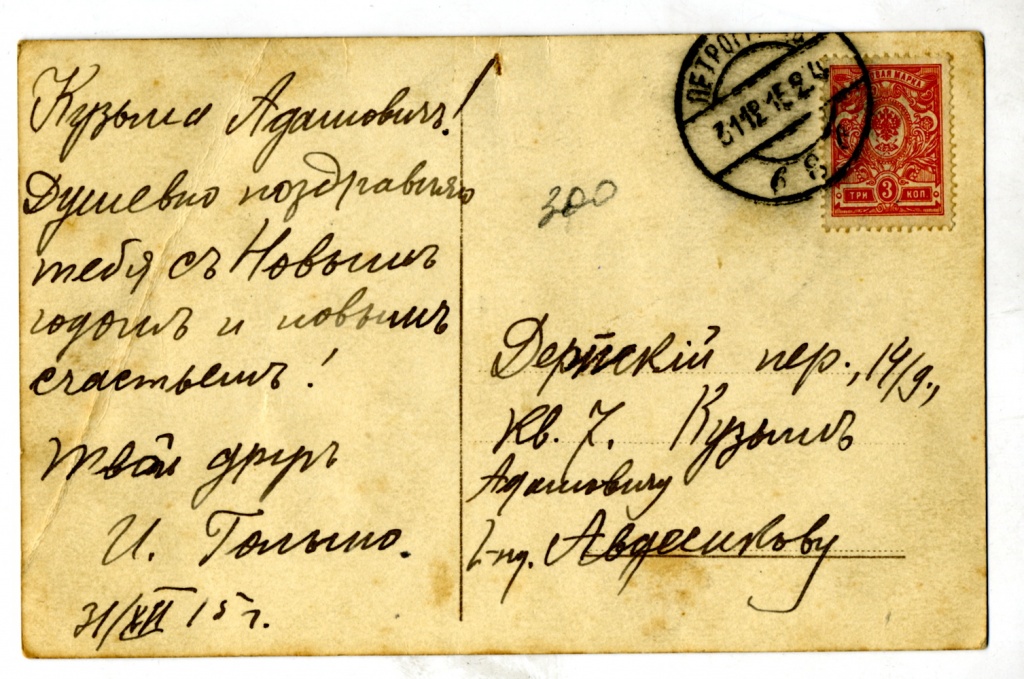 Кузьма Адамович!
Душевно поздравляю
тебя съ Новымъ
годомъ и новымъ
счастьемъ!
Твой другъ
И.
31/XII 15 г.
300
31 12 15
ТРИ 3 КОП
Дерптскій пер., 14/9.,
Кв. 7. Кузьмѣ
Адамовичу
Г-ну.